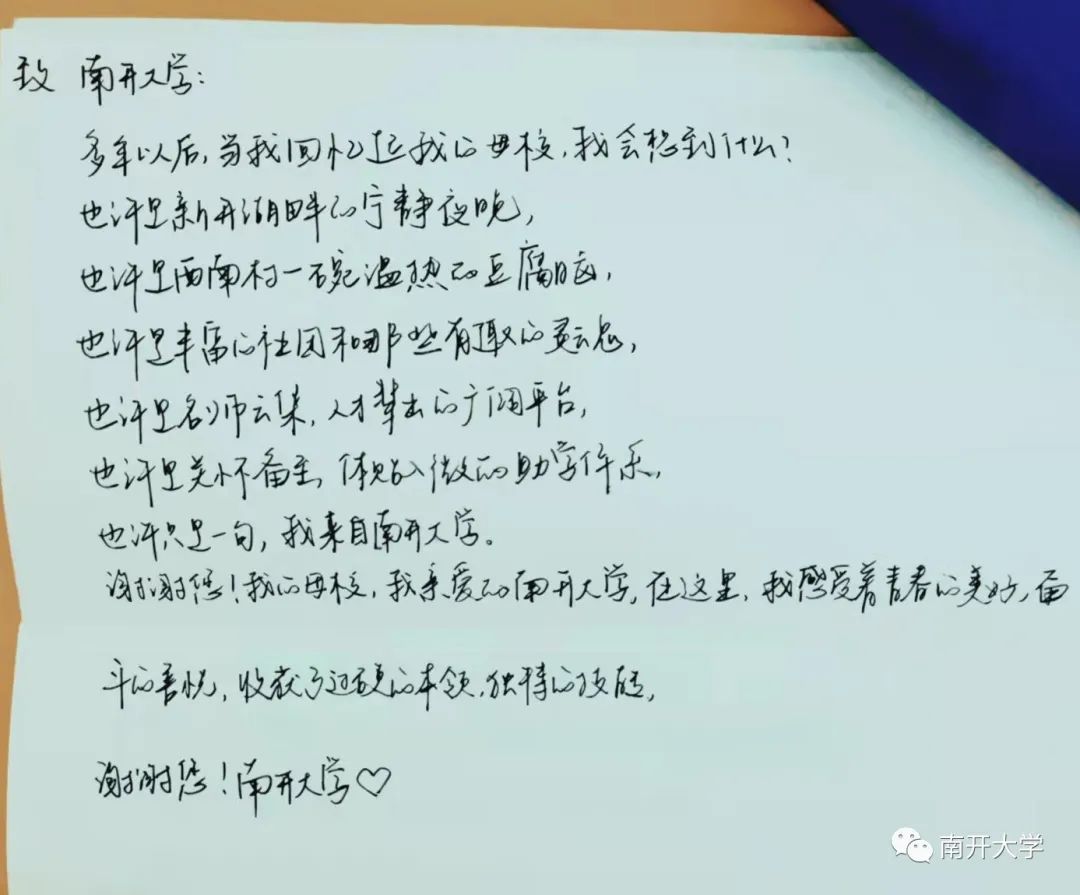 致 南开大学:
多年以后,当我回忆起我的母校,我会想到什么?
也许是新开湖畔的宁静夜晚,
也许是西南村一碗温热的豆腐脑,
也许是丰富的社团和那些有趣的灵魂,
也许是名师云集,人才辈出的广阔平台,
也许是关怀备至,体贴入微的助学体系,
也许只是一句,我来自南开大学。
谢谢您!我的母校,我亲爱的南开大学,在这里,我感受着青春的美好,奋
斗的喜悦,收获了过硬的本领,独特的技能,
谢谢您!南开大学♡
南开大学